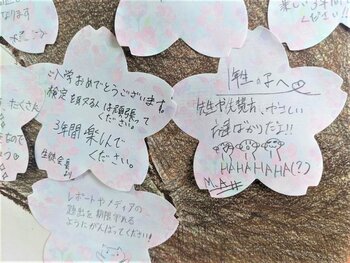 なります
楽しい3年間
ください!!
たくさん
ご入学おめでとうございます。
検定を取る人は頑張って
ください。
3年間楽しんで
ください。
生徒会員
より
1年生の子へ
先生や先輩方、やさしい
方達ばかりだよ!!
HAHAHAHA(?)
M.A.H
レポートやメディアの
提出を期限守れる
ようにがんばってください!